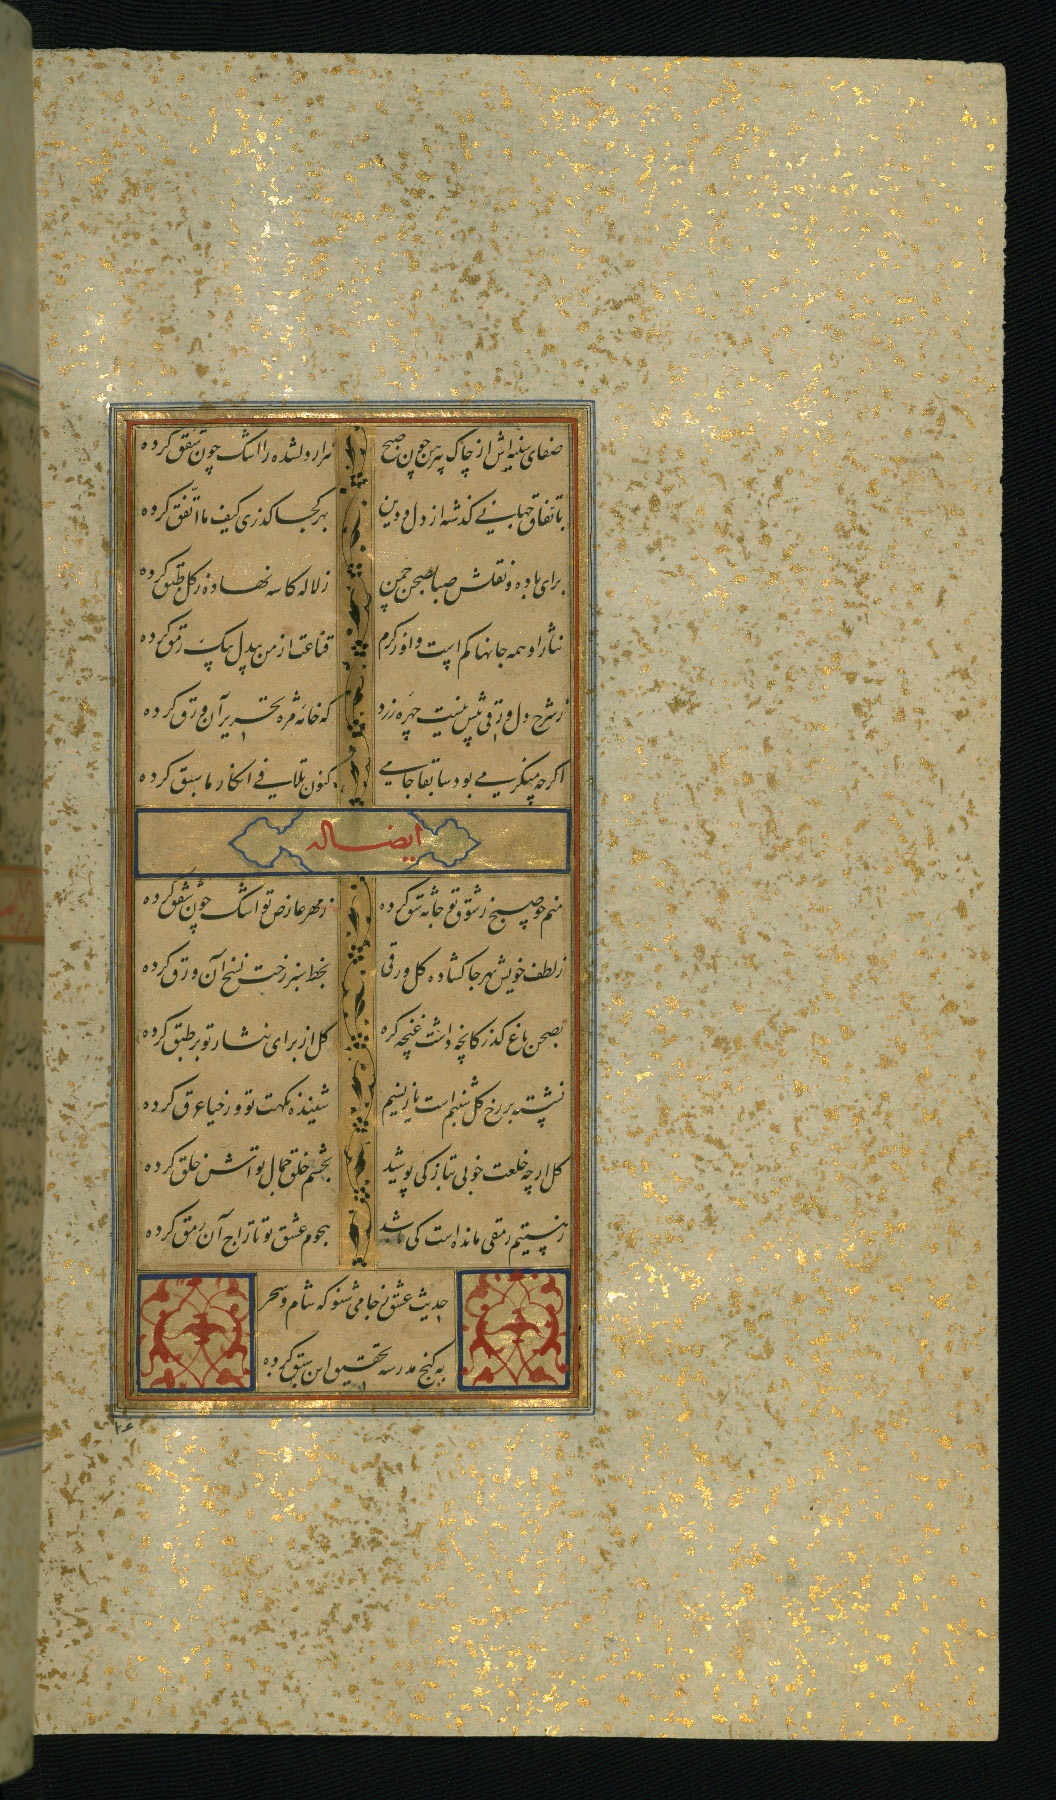 صفای سینه‌اش از چاک پیرهن چون صبح هزار دلشده را اشک چون شفق کرده
باتفاق جهانی گذشته از دل و دین بهر کجا گذری کیف ما اتفق کرده
برای باده و نقلش صبا بصحن چمن ز لاله کاسه نهاده ز گل طبق کرده
نثار او همه جانها کم است و او ز کرم قناعت از من بیدل بیک رمق کرده
ز شرح دل ورقی بیش نیست چهره زرد که خامه مژه تحریر آن ورق کرده
اگرچه منکر می بود سابقا جامی کنون تلافی انکار ما سبق کرده
ایضا له
منم چو صبح ز شوق تو جامه شق کرده ز مهر عارض تو اشک چون شفق کرده
ز لطف خویش بهر جا گشاده گل ورقی بخط سبز رخت نسخ آن ورق کرده
بصحن باغ گذر کانچه داشت غنچه گره گل از برای نثار تو بر طبق کرده
نشسته بر رخ گل شبنم است یا ز نسیم شنیده نکهت تو وز حیا عرق کرده
گل ارچه خلعت خوبی بتازگی پوشید بچشم خلق جمال تواتش خلق کرده
ز هستیم رمقی مانده است کی باشد هجوم عشق تو تاراج آن رمق کرده
حدیث عشق ز جامی شنو که شام و سحر
به کنج مدرسه تحقیق این سبق کرده